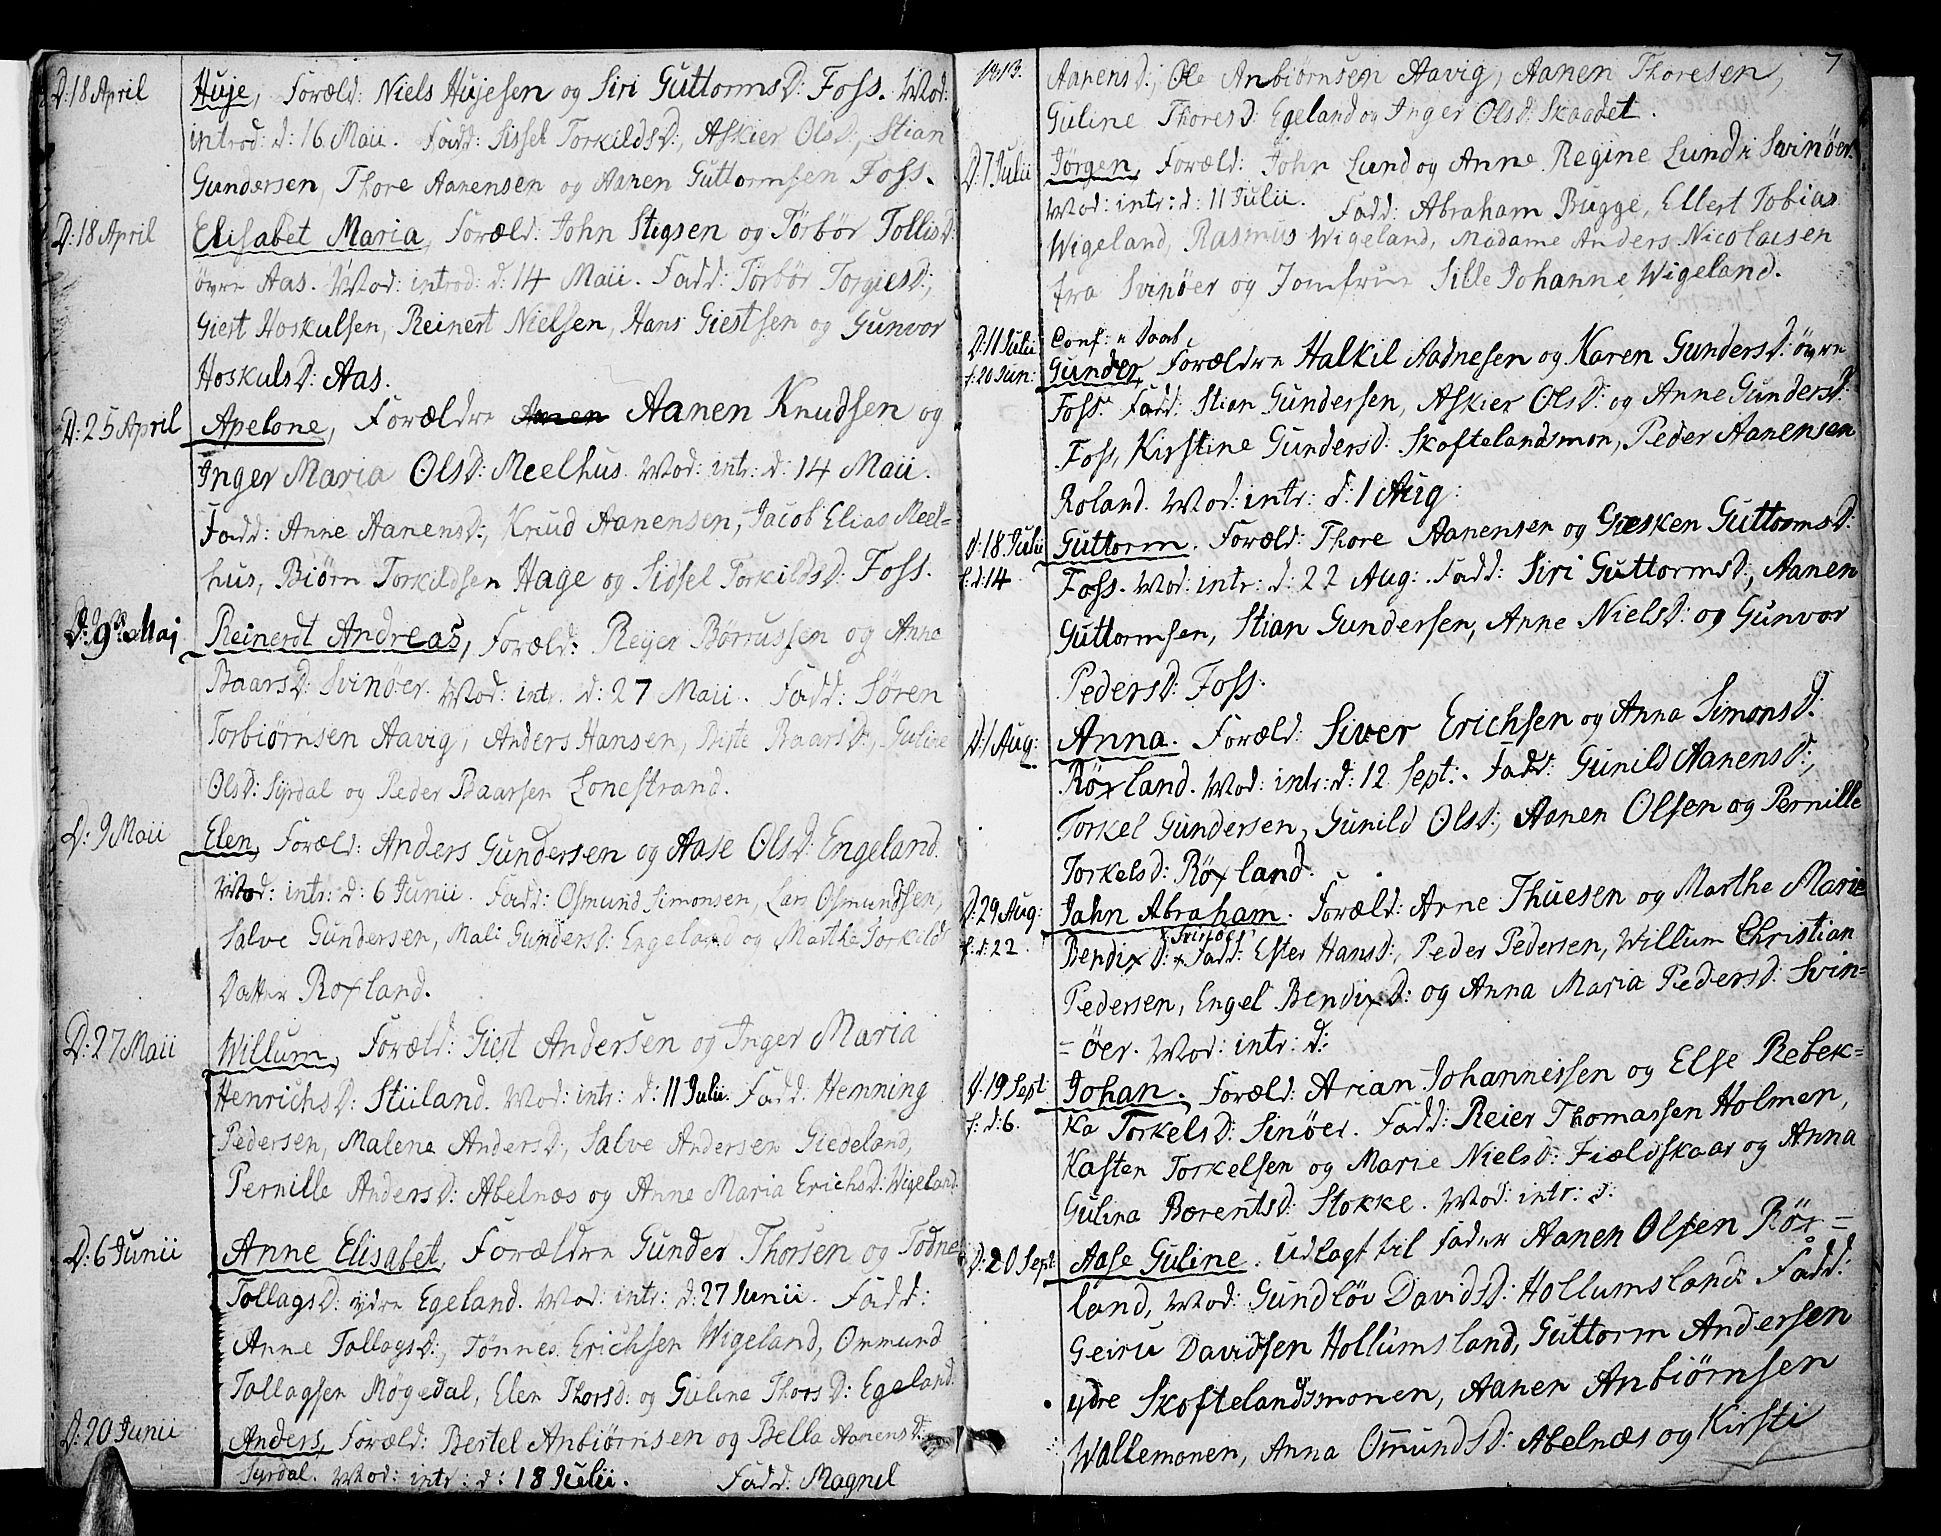 D: 18 April Huje, Foræld: Niels Hujesen og Siri GuttormsD: Foss. Mod:
introd: d: 16 Maii. Fadd: Sissel TorkildsD:, Askier OlsD:, Stian
Gundersen, Thore Aanensen og Aanen Guttormsen Foss.
D: 18 April Elisabet Maria, Foræld: John Stigsen og Törbör TollisD:
öyre Aas. Mod: introd: d: 14 Maii. Fadd: Törbör TorgiesD:,
Giest Hoskulsen, Reinert Nielsen, Hans Giestsen og Gunvor
HoskulsD: Aas.
D: 25 April Apelone, Forældre Aanen Knudsen og
Inger Maria OlsD: Meelhus. Mod: intr: d: 14 Maii.
Fadd: Anne AanensD:, Knud Aanensen, Jacob Elias Meel=
hus, Biörn Torkildsen Hage og Sidsel TorkildsD: Foss.
D: 9de Maj Reinerdt Andreas, Foræld: Reyer Börrussen og Anna
BaarsD: Svinöer. Mod: intr: d: 27 Maii. Fadd: Sören
Torbiörnsen Aavig, Anders Hansen, Birte BaarsD:, Guline
OlsD: Syrdal og Peder Baarsen Lonestrand.
D: 9 Maii Elen, Foræld: Anders Gundersen og Aase OlsD: Engeland.
Mod: intr: d: 6 Junii. Fadd: Osmund Simonsen, Lars Osmundsen,
Salve Gundersen, Mali GundersD: Engeland og Marthe Torkilds
Datter Roxland.
D: 27 Maii Willum, Foræld: Giest Andersen og Inger Maria
HenrichsD: Stüland. Mod: intr: d: 11 Julii. Fadd: Hemning
Pedersen, Malene AndersD:, Salve Andersen Giedeland,
Pernille AndersD: Abelnæs og Anne Maria ErichsD: Wigeland.
D: 6 Junii Anne Elisabet, Forældre Gunder Thorsen og Todne
TollagsD: ydre Egeland. Mod: intr: d: 27 Junii. Fadd:
Anne TollagsD:, Tönnes Erichsen Wigeland, Ommund
Tollagsen Mögedal, Elen ThorsD: og Guline ThorsD: Egeland.
D: 20 Junii Anders, Foræld: Bertel Anbiörnsen og Bella AanensD:
Syrdal. Mod: intr: d: 18 Julii. Fadd: Magnil
1813. 7
AanensD:, Ole Anbiörnsen Aavig, Aanen Thoresen,
Guline ThoresD: Egeland og Inger OlsD: Skaadet.
D: 7 Julii Jörgen, Foræld: John Lund og Anne Regine Lund i Svinöer.
Mod: intr: d: 11 Julii. Fadd: Abraham Bugge, Ellert Tobias
Wigeland, Rasmus Wigeland, Madame Anders Nicolaisen
fra Svinöer og Jomfrue Sille Johanne Wigeland.
D: 11 Julii Conf: n Daab,
f: 20 Jun: Gunder, Forældre Halkil Aadnesen og Karen GundersD: öyre
Foss. Fadd: Stian Gundersen, Askier OlsD: og Anne GundersD:
Foss, Kirstine GundersD: Skoftelandsmon, Peder Aanensen
Roland. Mod: intr: d: 1 Aug:
D: 18 Julii Guttorm. Foræld: Thore Aanensen og Giesken GuttormsD:
f: d: 14 Foss. Mod: intr: d: 22 Aug: Fadd: Siri GuttormsD:, Aanen
Guttormsen, Stian Gundersen, Anne NielsD: og Gunvor
PedersD: Foss.
D: 1 Aug: Anna. Foræld: Siver Erichsen og Anna SimonsD:
Röxland. Mod: intr: d: 12 Sept:. Fadd: Gunild AanensD:,
Torkel Gundersen, Gunild OlsD:, Aanen Olsen og Pernille
TorkelsD: Röxland.
D: 29 Aug: Jahn Abraham. Foræld: Arne Thuesen og Marthe Marie
Svinöer
f: d: 22 BendixD: x Fadd: Ester HansD:, Peder Pedersen, Willum Christian
Pedersen, Engel BendixD: og Anna Maria PedersD: Svin=
=öer. Mod: intr: d:
D: 19 Sept: Johan. Foræld: Arian Johannessen og Else Rebek=
f: d: 6. ka TorkelsD: Sinöer. Fadd: Reier Thomassen Holmen,
Kasten Torkelsen og Marie NielsD: Fieldskaar og Anna
Gulina BorentsD: Stokke. Mod: intr: d:
D: 20 Sept: Aase Guline. Udlagt til Fader Aanen Olsen Röx=
land, Mod: Gundlöv DavidsD: Hollumsland. Fadd:
Geiru Davidsen Hollumsland, Guttorm Andersen
ydre Skoftelandsmonen, Aanen Anbiörnsen
Wallemonen, Anna OmundsD: Abelnæs og Kirsti